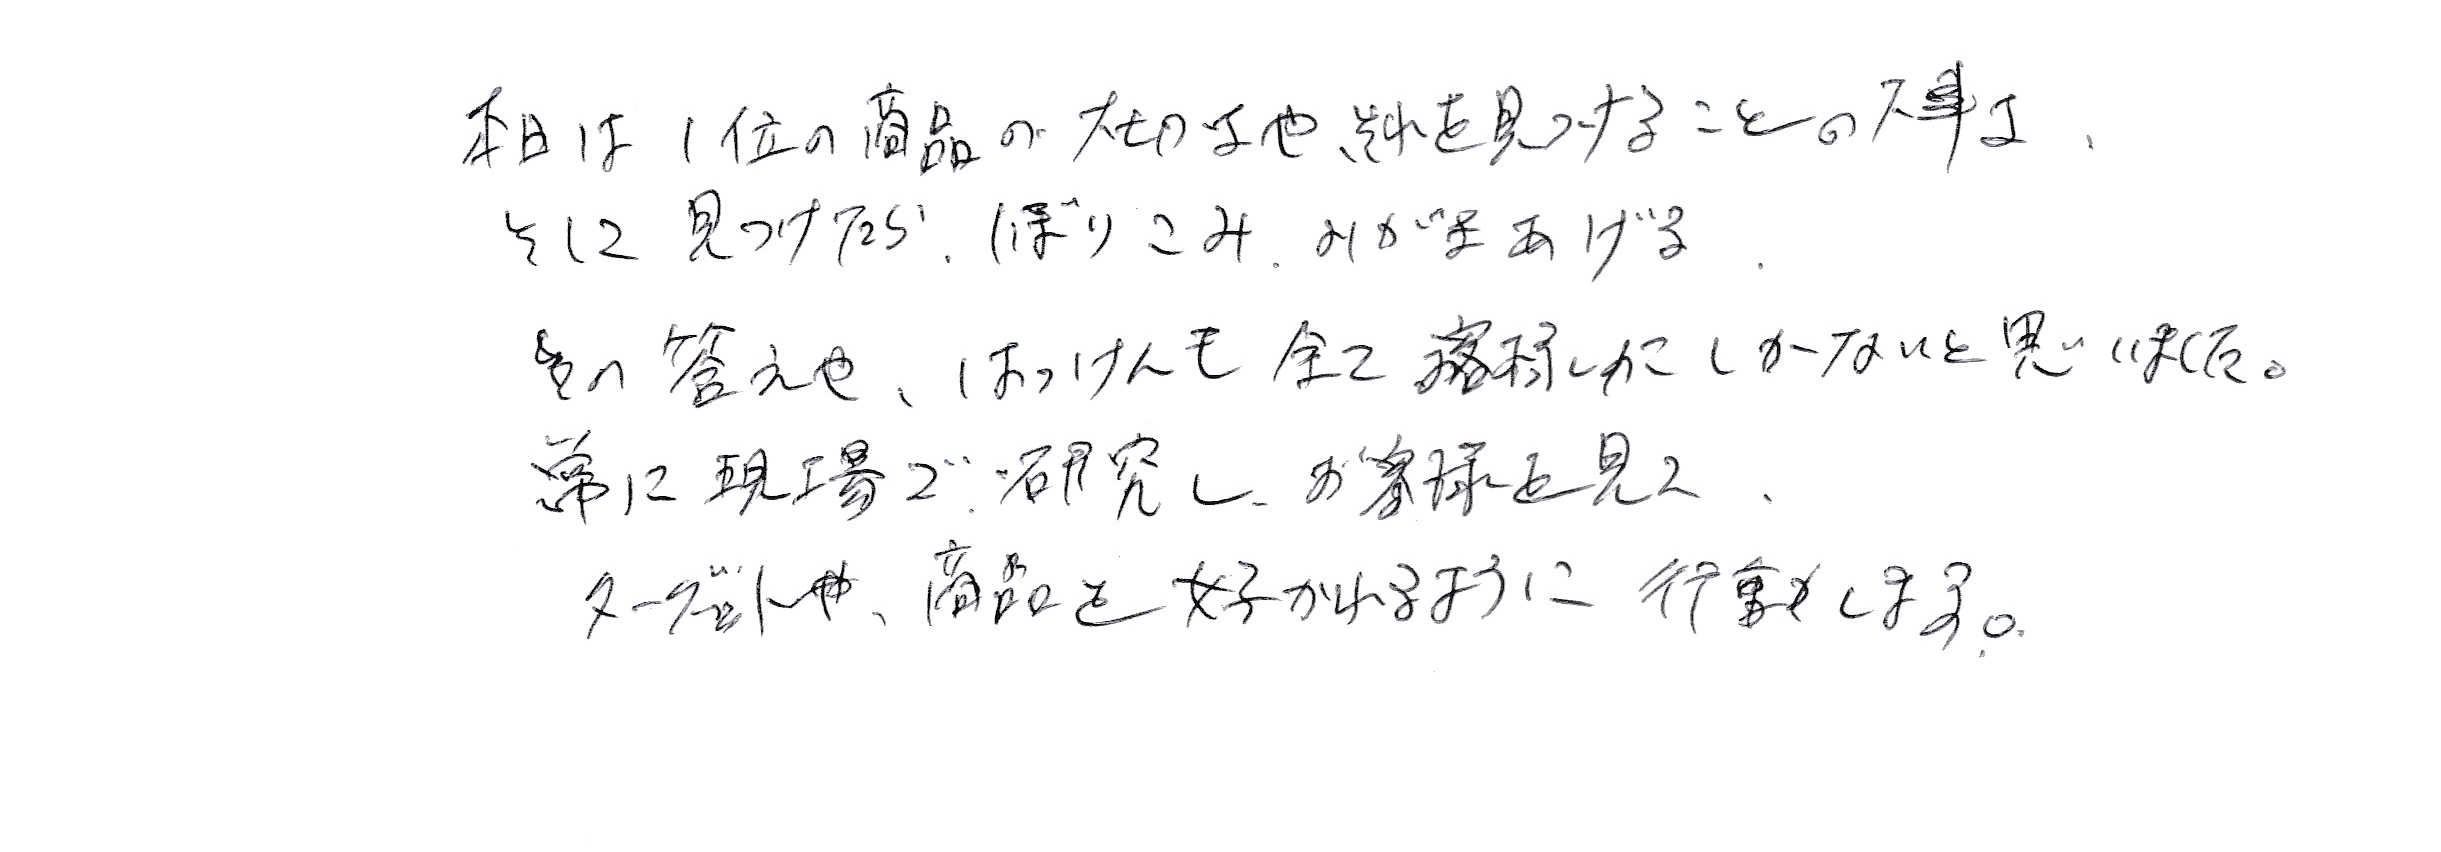 本日は1位の商品の大切さや、それを見つけることの大事さ、
そして見つけたら、ほりこみ、みがきあげる、
その答えや、はっけんも全て客様しかにしかないと思いました。
常に現場で研究し、お客様を見て、
ターゲットや、商品を好かれるように行動します。